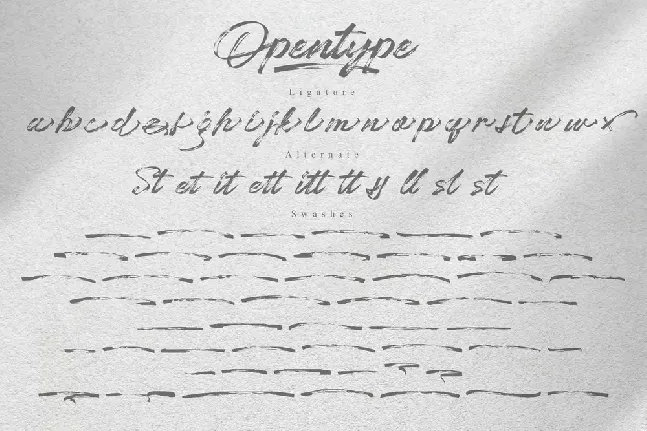 Opentype
Ligature
a b c d e s f g h i j k l m n o p q r s t u w x
Alternate
St et it ett itt tt ty ll sl st
Swashes